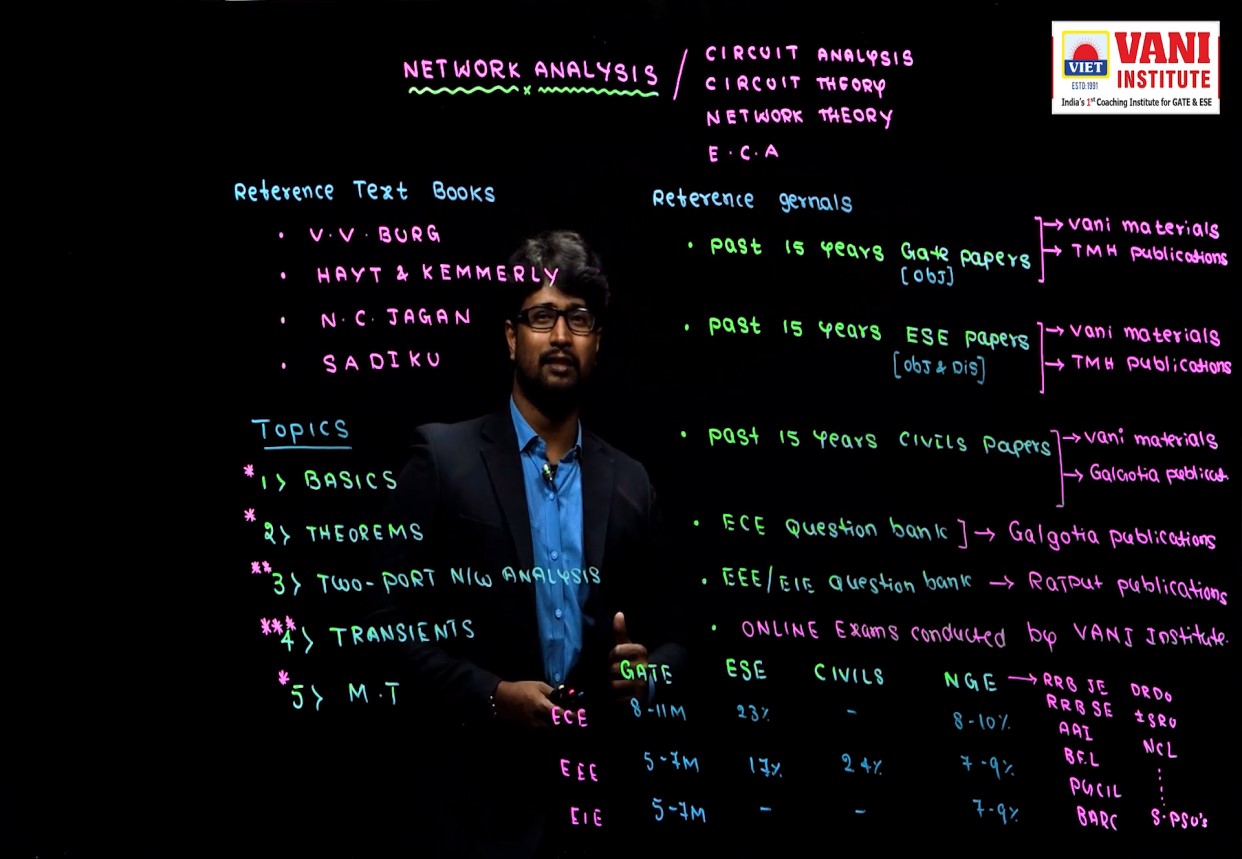 NETWORK ANALYSIS / CIRCUIT ANALYSIS
CIRCUIT THEORY
NETWORK THEORY
E.C.A
VIET
ESTD:1991
VANI INSTITUTE
India's 1st Coaching Institute for GATE & ESE
Reference Text Books
• V.V.BURG
• HAYT & KEMMERLY
• N.C.JAGAN
• SADIKU
Topics
*1> BASICS
*2> THEOREMS
**3> TWO-PORT N/W ANALYSIS
***4> TRANSIENTS
*5> M.T
Reference gernals
• past 15 years Gate papers → vani materials
[OBJ] → TMH publications
• past 15 years ESE papers → vani materials
[OBJ & DIS] → TMH publications
• past 15 years CIVILS papers → vani materials
→ Galgotia publicat
• ECE Question bank ] → Galgotia publications
• EEE/EIE Question bank → Rajput publications
• ONLINE Exams conducted by VANI Institute.
GATE ESE CIVILS NGE → RRB JE DRDO
RRB SE ISRO
ECE 8-11M 23% - 8-10% AAI NCL
EEE 5-7M 17% 24% 7-9% BEL
PGCIL
EIE 5-7M - - 7-9% BARC S-PSU's